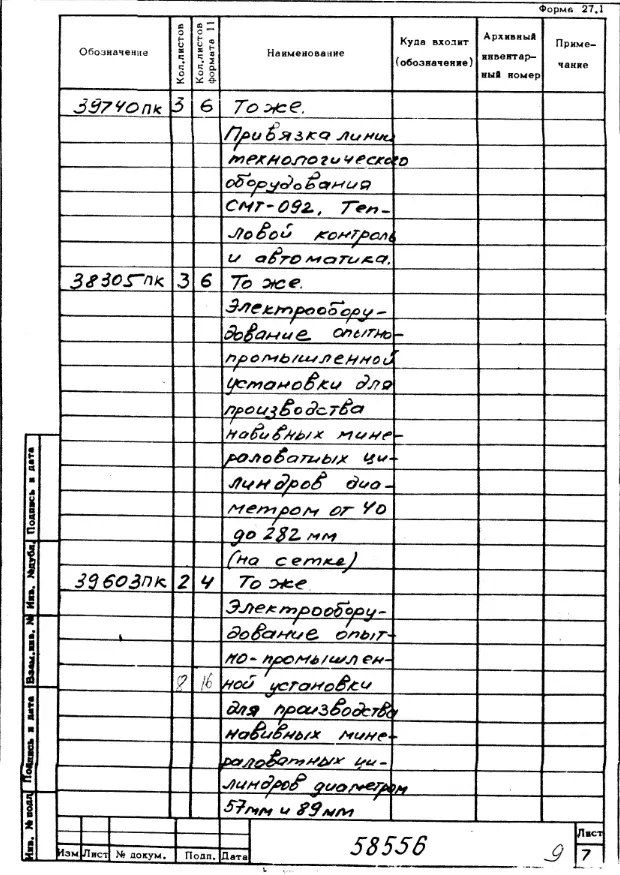 Форма 27.1
Обозначение
Кол.листов
Кол.листов формата 11
Наименование
Куда входит (обозначение)
Архивный инвентар-ный номер
Приме-чание
39740пк 3 6 То же.
Привязка линии
технологического
оборудования
СМТ-092. Теп-
ловой контроль
и автоматика.
38305пк 3 6 То же.
Электрообору-
дование опытно-
промышленной
установки для
производства
навивных мине-
раловатных ци-
линдров диа-
метром от 40
до 282 мм
(на сетке)
39603пк 2 4 То же
Электрообору-
дование опыт-
но-промышлен-
ной установки
для производства
навивных мине-
раловатных ци-
линдров диаметром
57мм и 89мм
Подпись и дата
Инв. №дубл.
Взам.инв. №
Подпись и дата
Инв. №подл
Изм Лист № докум. Подп. Дата
58556
9
Лист
7